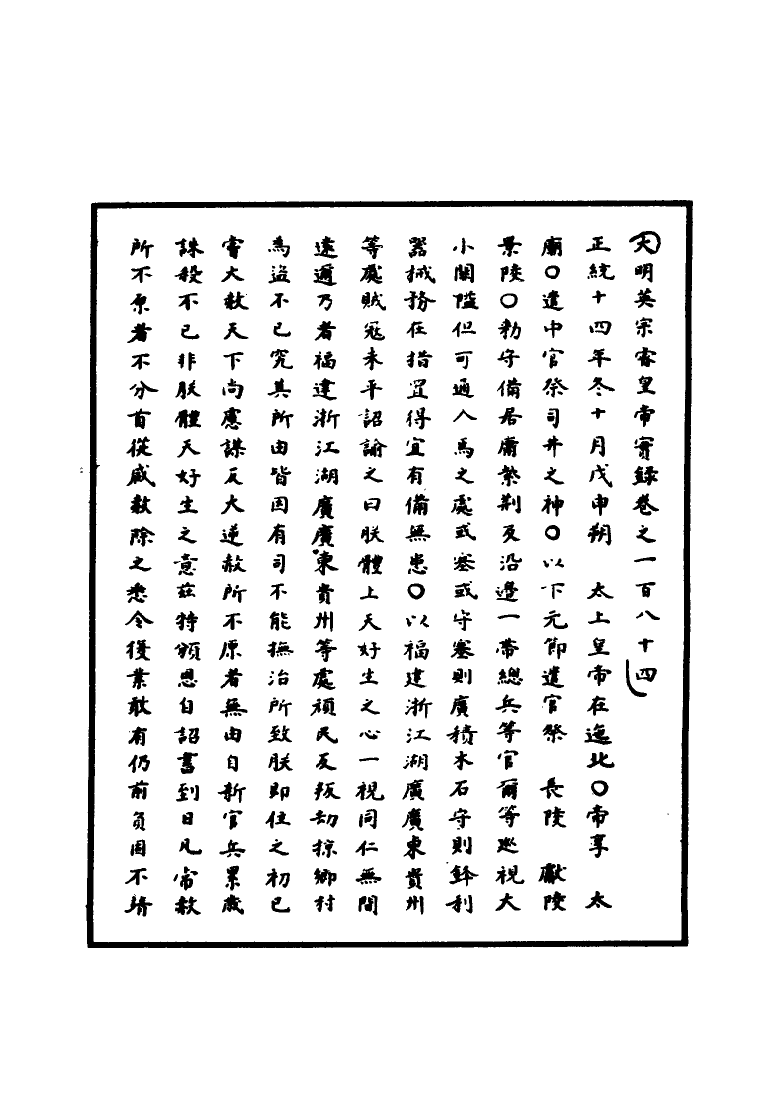 大明英宗睿皇帝實錄卷之一百八十四
正統十四年冬十月戊申朔　太上皇帝在迤北〇帝享　太
廟〇遣中官祭司井之神〇以下元節遣官祭　長陵　獻陵
景陵〇勑守備居庸紫荆及沿邊一帶總兵等官爾等廵視大
小關隘但可通人馬之處或塞或守塞則廣積木石守則鋒利
器械務在措置得宜有備無患〇以福建浙江湖廣廣東貴州
等處賊冦未平詔諭之曰朕體上天好生之心一視同仁無間
遠邇乃者福建浙江湖廣廣東貴州等處頑民反叛劫掠鄉村
為盜不已究其所由皆因有司不能撫治所致朕即位之初已
嘗大赦天下尚慮謀反大逆赦所不原者無由自新官兵累歲
誅殺不已非朕體天好生之意茲特頒恩自詔書到日凡常赦
所不原者不分首從咸赦除之悉令復業敢有仍前負固不靖